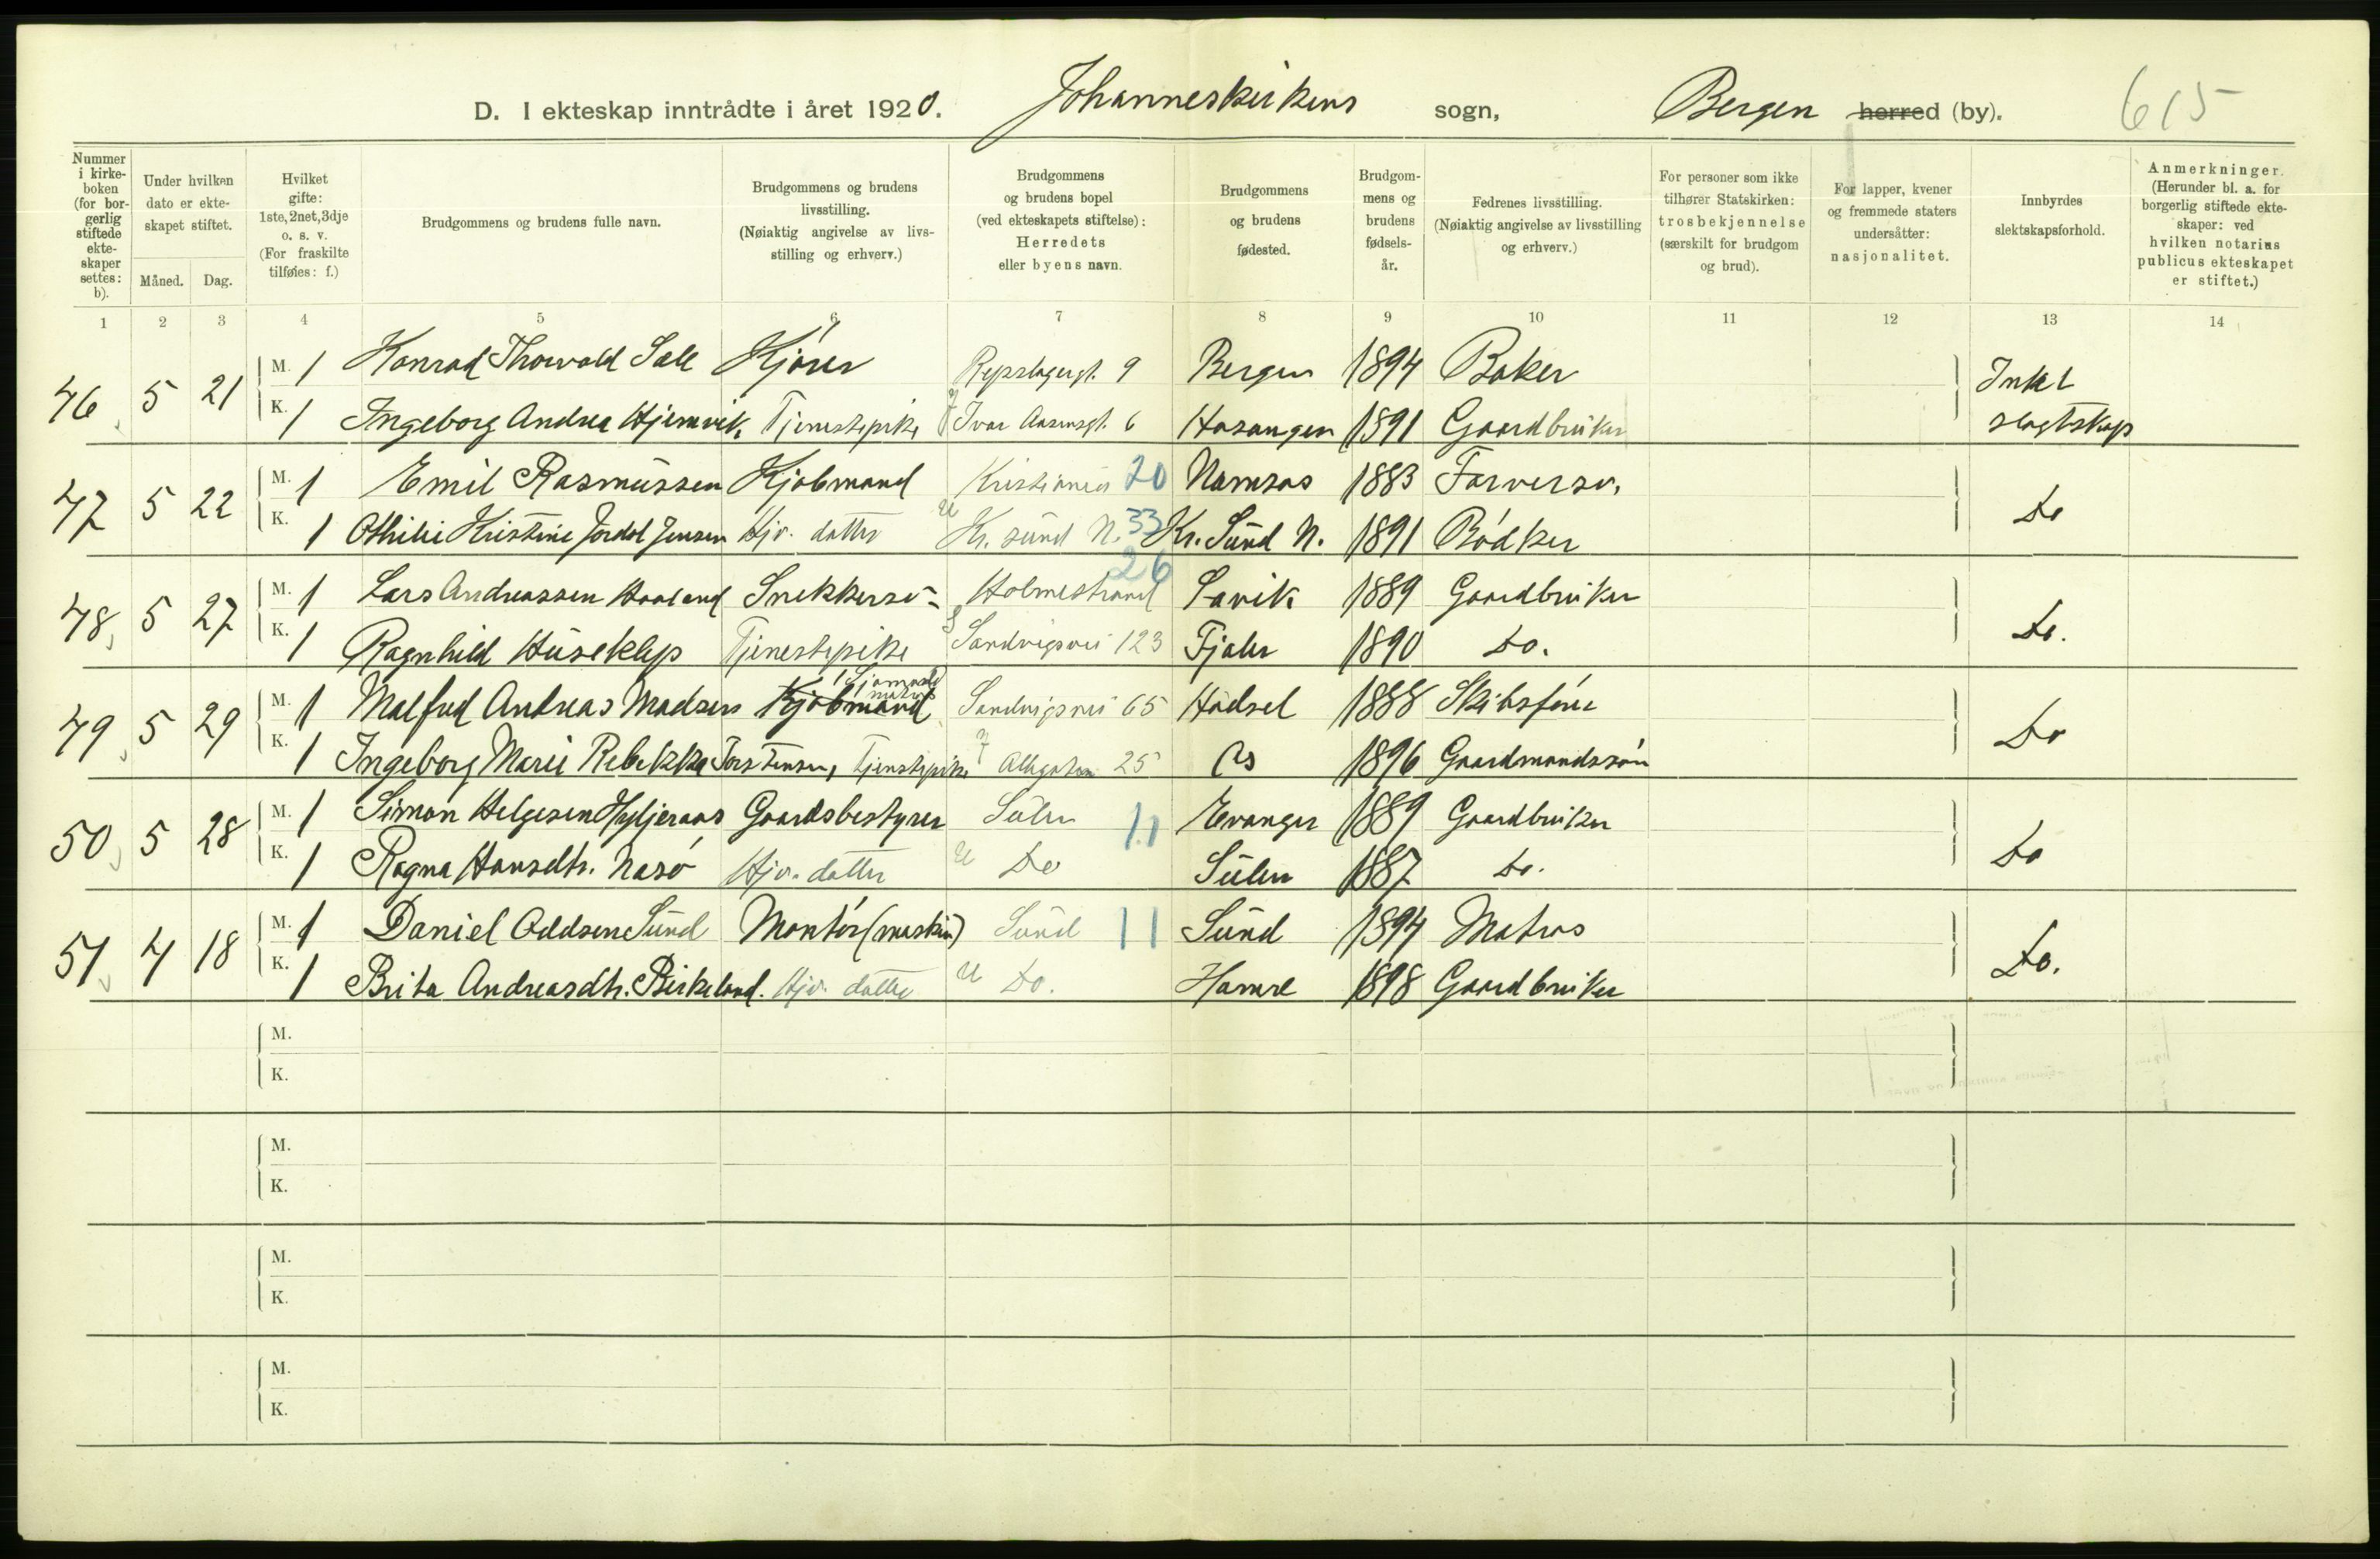 D. I ekteskap inntrådte i året 1920. Johanneskirkens sogn, Bergen herred (by). 615
Nummer i kirkeboken (for borgerlig stiftede ekteskaper settes: b).
Under hvilken dato er ekteskapet stiftet.
Måned. Dag.
Hvilket gifte: 1ste, 2net, 3dje o. s. v. (For fraskilte tilføies: f.)
Brudgommens og brudens fulle navn.
Brudgommens og brudens livsstilling. (Nøiaktig angivelse av livsstilling og erhverv.)
Brudgommens og brudens bopel (ved ekteskapets stiftelse): Herredets eller byens navn.
Brudgommens og brudens fødested.
Brudgommens og brudens fødselsår.
Fedrenes livsstilling. (Nøiaktig angivelse av livsstilling og erhverv.)
For personer som ikke tilhører Statskirken: trosbekjennelse (særskilt for brudgom og brud).
For lapper, kvener og fremmede staters undersåtter: nasjonalitet.
Innbyrdes slektskapsforhold.
Anmerkninger. (Herunder bl. a. for borgerlig stiftede ekteskaper: ved hvilken notarius publicus ekteskapet er stiftet.)
1 2 3 4 5 6 7 8 9 10 11 12 13 14
46 5 21 M. 1 Konrad Thorvald Sæle Kjører Repslagergt. 9 Bergen 1894 Baker Inkt slægtskap
K. 1 Ingeborg Andrea Hjemvik Tjenestepike Ivar Aasensgt. 6 Hosangen 1891 Gaardbruker
47 5 22 M. 1 Emil Rasmussen Kjøbmand Kristiania 20 Namsos 1883 Farversv. Do
K. 1 Othilie Kristine Jensen Hjv. datter u Kr. sund N. 33 Kr. Sund N. 1891 Bødker
48 5 27 M. 1 Lars Andreassen Haaland Snekkersv. Holmestrand 26 Lavik 1889 Gaardbruker Do.
K. 1 Ragnhild Huseklep Tjenestepike Sandvigsvei 123 Fjaler 1890 Do.
49 5 29 M. 1 Malfred Andreas Madsen Kjøbmand Sandvigsvei 65 Hadsel 1888 Skibsfører Do
K. 1 Ingeborg Marie Rebekka Torstensen, Tjenestepike Allegaten 25 Os 1896 Gaardmandssøn
50 5 28 M. 1 Simon Helgesen Gaardsbestyrer Sulen 11 Evanger 1889 Gaardbruker Do
K. 1 Ragna Hansdtr. Nasø Hjv. datter u Do Sulen 1887 Do.
51 4 18 M. 1 Daniel Oddsen Sund Montør (maskin) Sund 11 Sund 1894 Matros Do.
K. 1 Brita Andreasdtr. Birkeland. Hjv. datter u Do. Hamre 1898 Gaardbruker
M.
K.
M.
K.
M.
K.
M.
K.